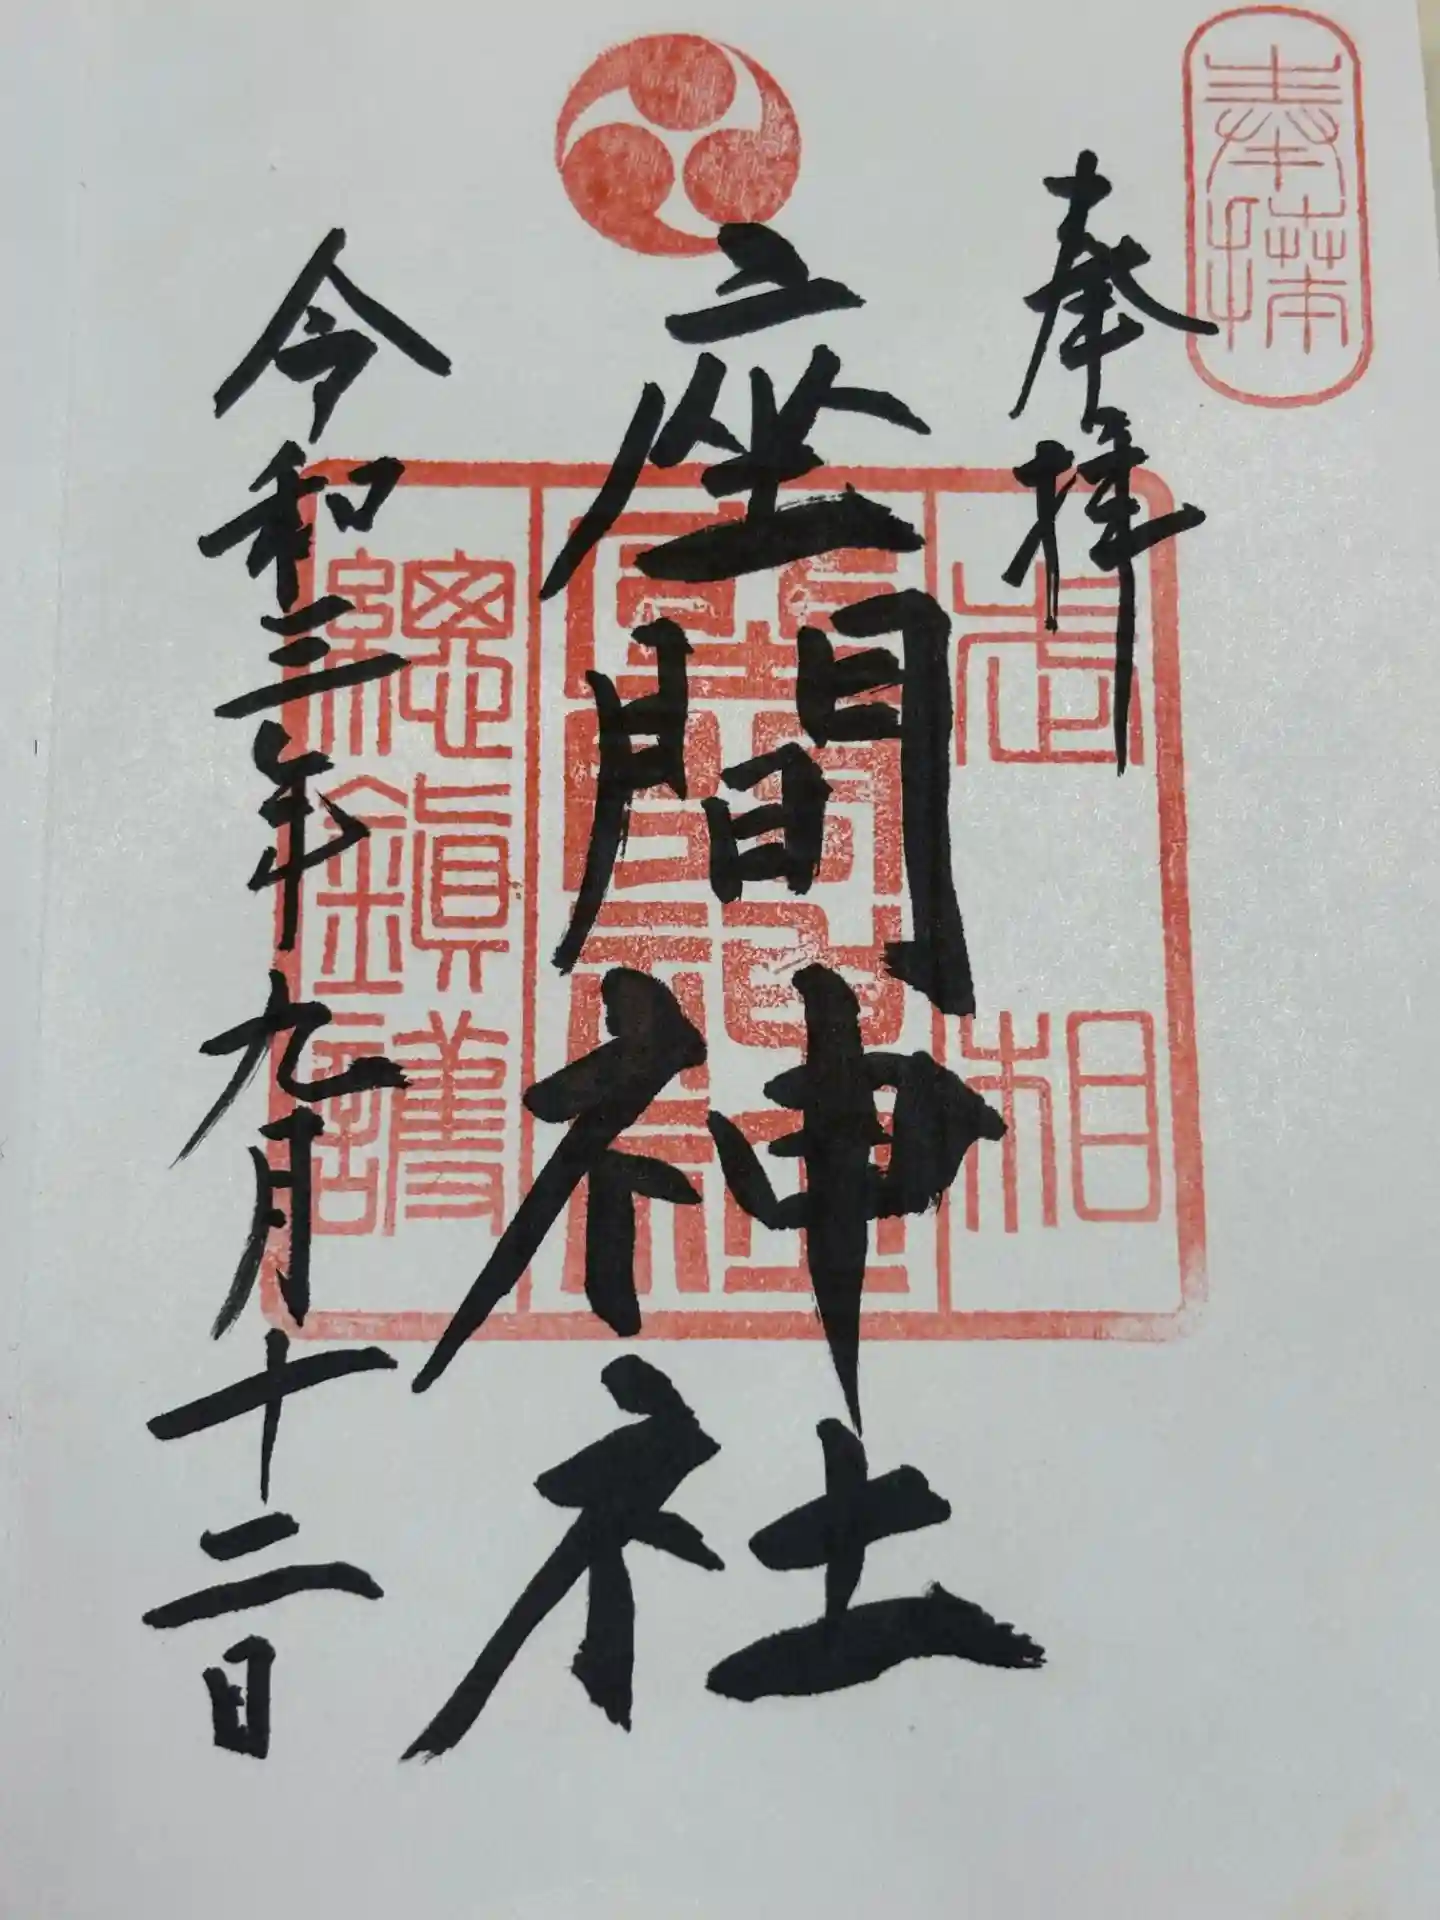 奉拝
奉拝
座間神社
相武
座間神社
總鎮護
令和三年九月十二日